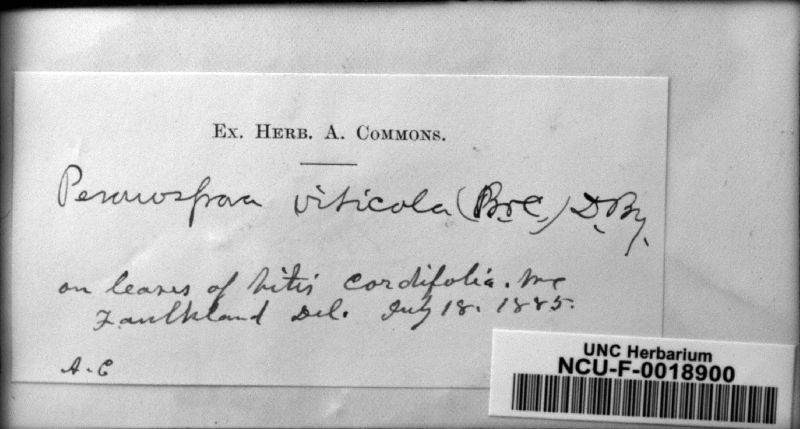 Ex. Herb. A. Commons.
Peronospora viticola (B&C.) D.By.
on leaves of Vitis cordifolia. Mx
Faulkland Del. July 18. 1885.
A.C
UNC Herbarium
NCU-F-0018900